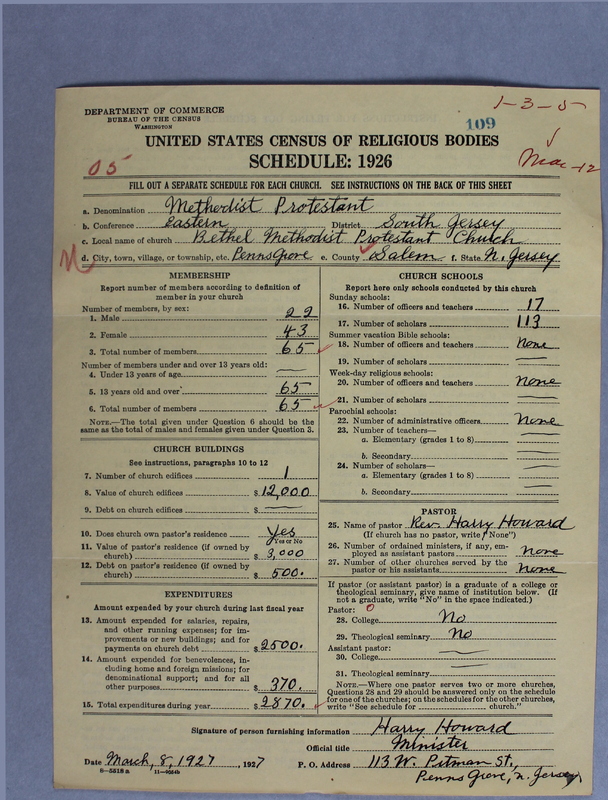 1-3-5
109
Mac-12
DEPARTMENT OF COMMERCE
BUREAU OF THE CENSUS
WASHINGTON
UNITED STATES CENSUS OF RELIGIOUS BODIES
05
SCHEDULE: 1926
FILL OUT A SEPARATE SCHEDULE FOR EACH CHURCH. SEE INSTRUCTIONS ON THE BACK OF THIS SHEET
a. Denomination Methodist Protestant
b. Conference Eastern District South Jersey
c. Local name of church Bethel Methodist Protestant Church
d. City, town, village, or township, etc. Penns Grove e. County Salem f. State N. Jersey
MEMBERSHIP
Report number of members according to definition of
member in your church
Number of members, by sex:
1. Male 22
2. Female 43
3. Total number of members 65
Number of members under and over 13 years old:
4. Under 13 years of age —
5. 13 years old and over 65
6. Total number of members 65
NOTE.—The total given under Question 6 should be the
same as the total of males and females given under Question 3.
CHURCH BUILDINGS
See instructions, paragraphs 10 to 12
7. Number of church edifices 1
8. Value of church edifices $12,000
9. Debt on church edifices $ —
10. Does church own pastor's residence Yes
Yes or No
11. Value of pastor's residence (if owned by
church) $3,000
12. Debt on pastor's residence (if owned by
church) $500.
EXPENDITURES
Amount expended by your church during last fiscal year
13. Amount expended for salaries, repairs,
and other running expenses; for im-
provements or new buildings; and for
payments on church debt $2500.
14. Amount expended for benevolences, in-
cluding home and foreign missions; for
denominational support; and for all
other purposes $370.
15. Total expenditures during year $2870.
CHURCH SCHOOLS
Report here only schools conducted by this church
Sunday schools:
16. Number of officers and teachers 17
17. Number of scholars 113
Summer vacation Bible schools:
18. Number of officers and teachers None
19. Number of scholars —
Week-day religious schools:
20. Number of officers and teachers None
21. Number of scholars —
Parochial schools:
22. Number of administrative officers None
23. Number of teachers—
a. Elementary (grades 1 to 8) —
b. Secondary —
24. Number of scholars—
a. Elementary (grades 1 to 8) —
b. Secondary —
PASTOR
25. Name of pastor Rev. Harry Howard
(If church has no pastor, write "None")
26. Number of ordained ministers, if any, em-
ployed as assistant pastors None
27. Number of other churches served by the
pastor or his assistants None
If pastor (or assistant pastor) is a graduate of a college or
theological seminary, give name of institution below. (If
not a graduate, write "No" in the space indicated.)
Pastor: 0
28. College No
29. Theological seminary No
Assistant pastor:
30. College —
31. Theological seminary —
NOTE.—Where one pastor serves two or more churches,
Questions 28 and 29 should be answered only on the schedule
for one of the churches; on the schedules for the other churches,
write "See schedule for church."
Signature of person furnishing information Harry Howard
Official title Minister
Date March, 8, 1927, 1927 P. O. Address 113 W. Pitman St.,
Penns Grove, N. Jersey